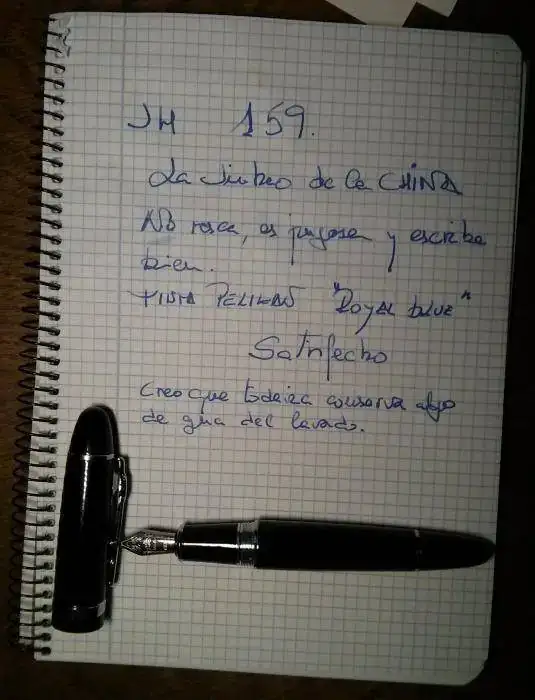 JH 159.
La Jinhao de la CHINA
No rasca, es juyosa y escribe
bien.
TINTA PELIKAN "Royal blue"
Satinfecho
Creo que todavia conserva algo
de gua del lavado.